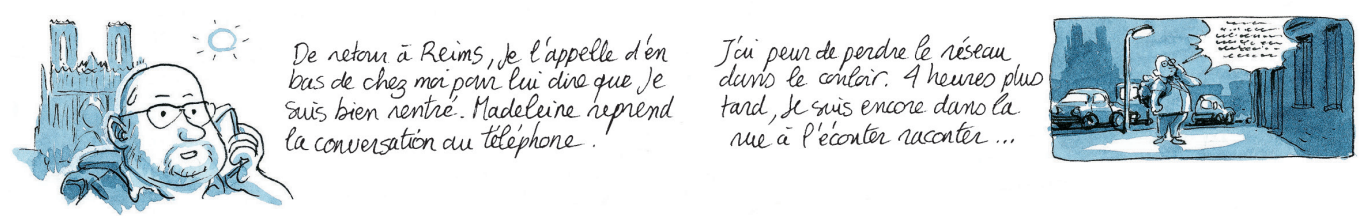 De retour à Reims, je l'appelle d'en
bas de chez moi pour lui dire que je
suis bien rentré. Madeleine reprend
la conversation au téléphone.
J'ai peur de perdre le réseau
dans le couloir. 4 heures plus
tard, je suis encore dans la
rue à l'écouter raconter...